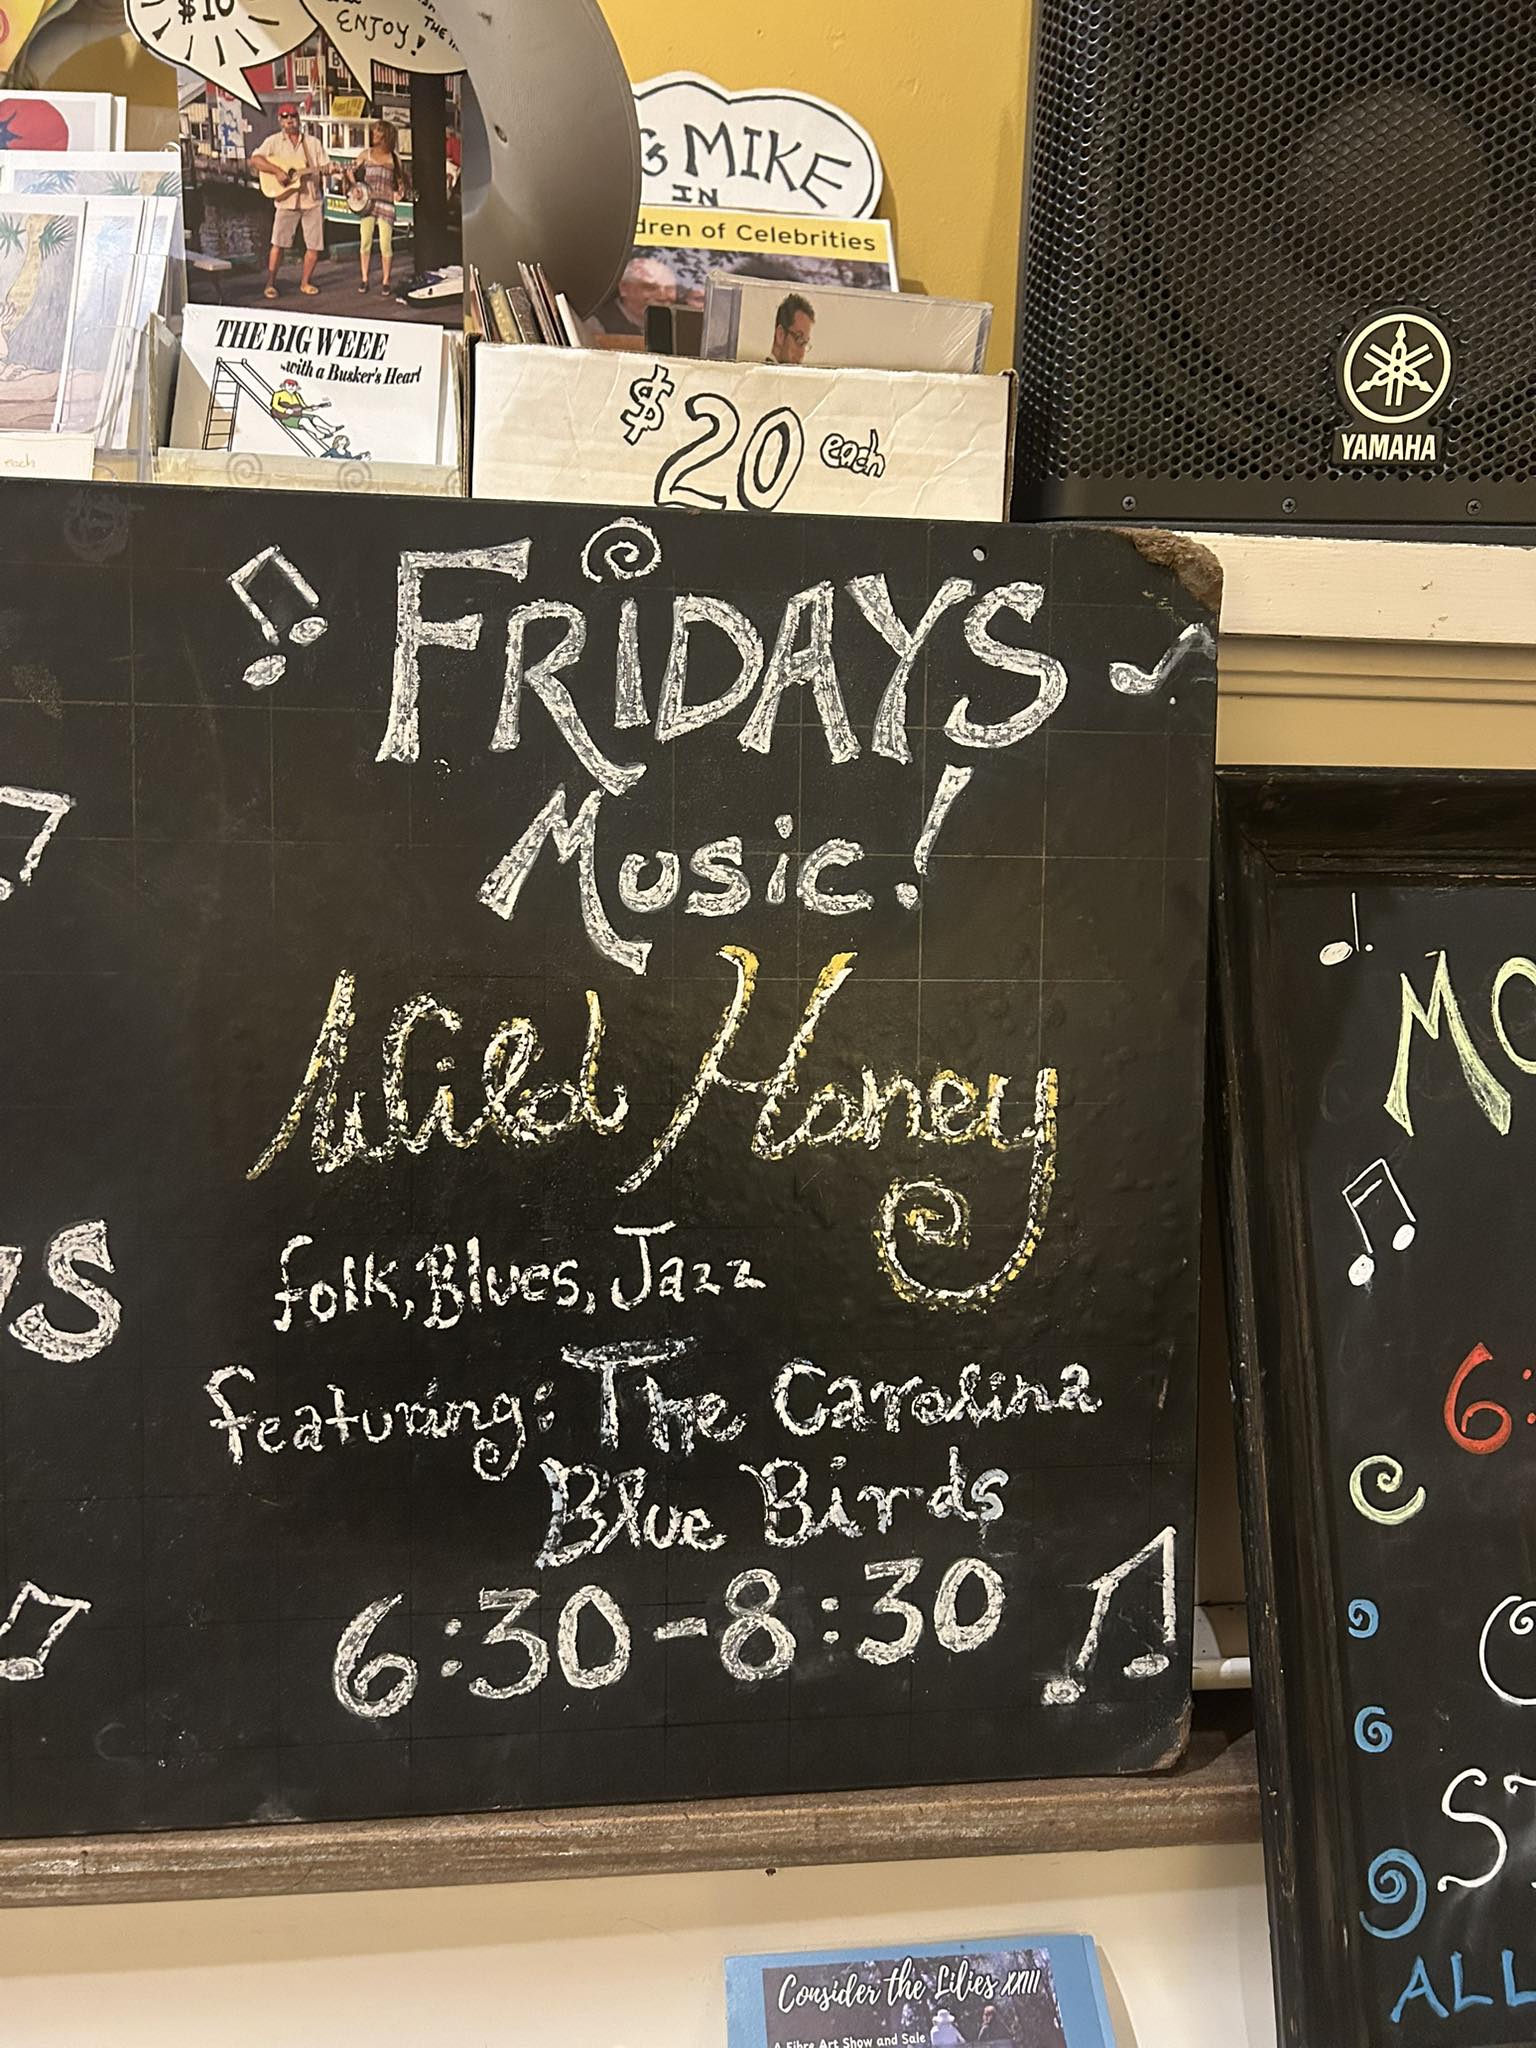 $10
ENJOY!
MIKE
IN
of Celebrities
THE BIG W'EEE
with a Busker's Heart
$20 each
each
YAMAHA
FRiDAYS
Music!
Wild Honey
folk, Blues, Jazz
featuring: The Carolina
Blue Birds
6:30-8:30
6:
ALL
Consider the Lilies XXIII
A Fibre Art Show and Sale